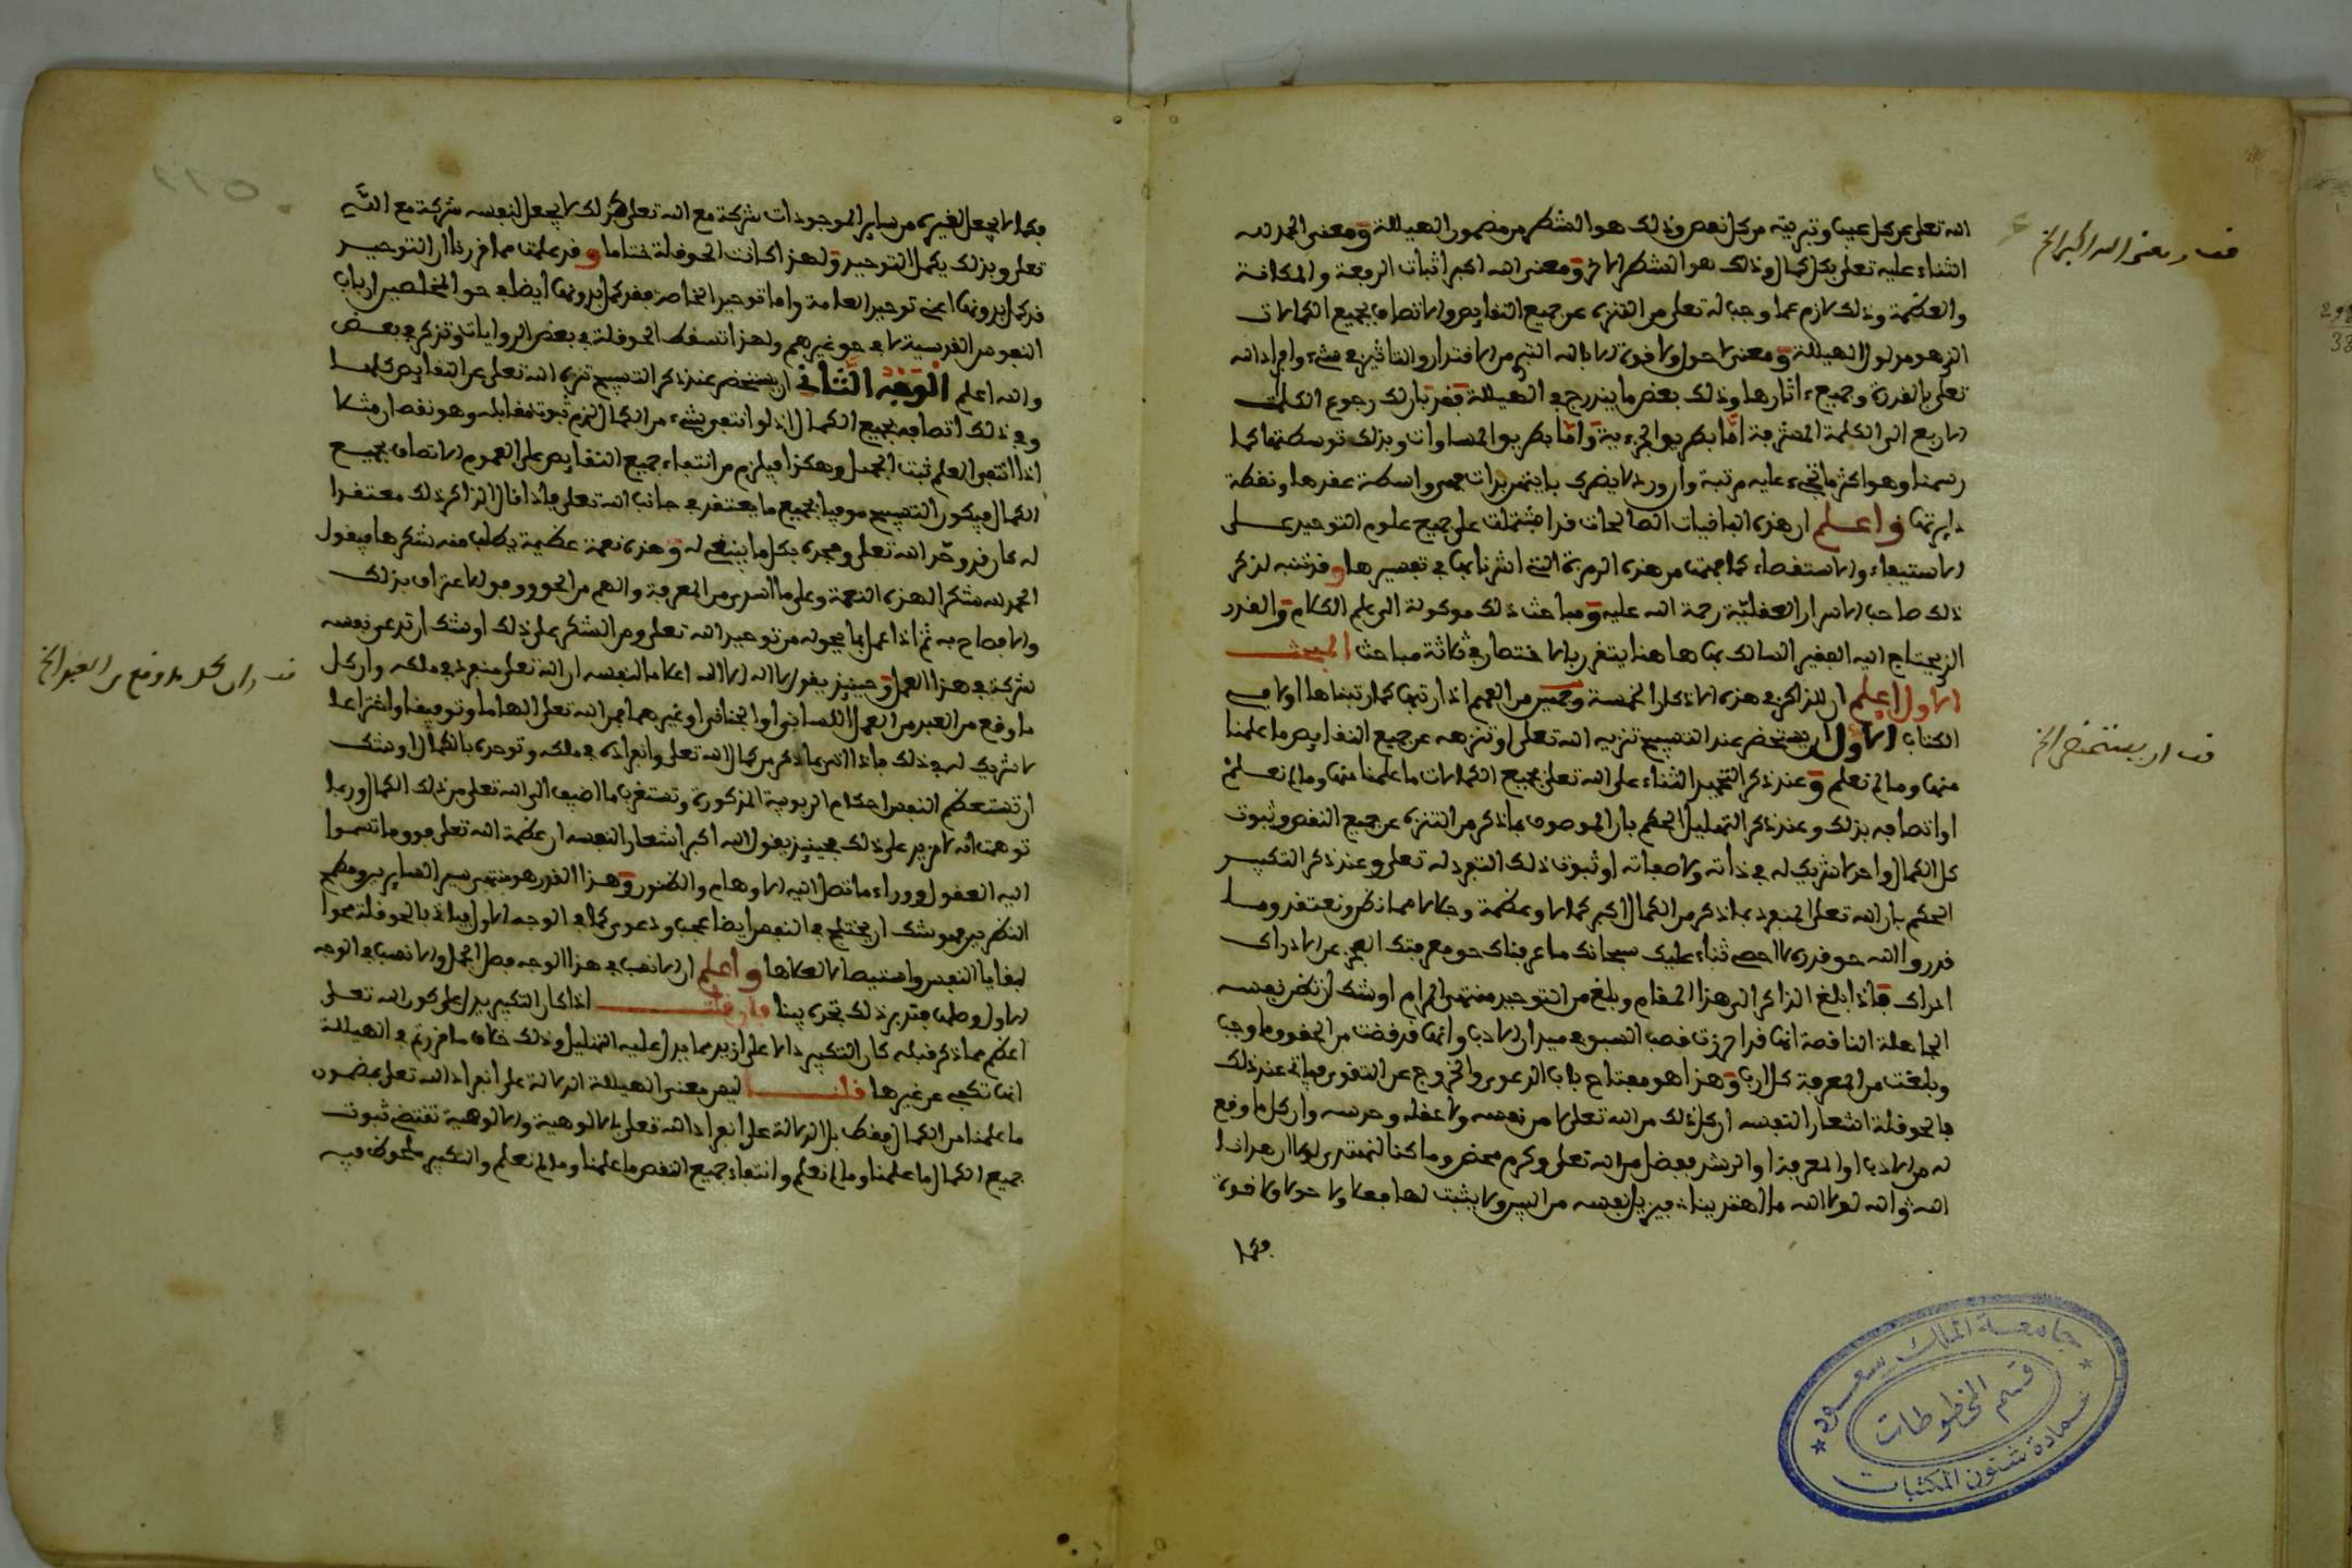 الله تعلى عن كل عيب وتبريه من كل نقص وذلك هو الشطر من مضمون الهيللة ومعنى الحمد لله
الثناء عليه تعلى بكل كمال وذلك هو الشطر الاخر ومعنى الله اكبر اثبات الرفعة والمكانة
والعظمة وذلك لازم عما وجب له تعلى من التنزه عن جميع النقايص والاتصاف بجميع الكمالات
الذي هو مدلول الهيللة ومعنى لا حول ولا قوة الا بالله التبري من الاقتدار والتاثير في شيء وافراد الله
تعلى بالقدرة وجميع ءاثارها وذلك بعض ما يندرج في الهيللة فقد بان لك رجوع الكلمات
الاربع الى الكلمة المشرفة اما بطريق الجزءية واما بطريق المساوات وبذلك توسطتها كما
رسمنا وهو اكثر ما تجيء عليه مرتبة وان ورد لا يضرك بايتهن بدات فهي واسطة عقدها ونقطة
دايرتها واعلم ان هذه الباقيات الصالحات قد اشتملت على جميع علوم التوحيد على
الاستيفاء والاستقصاء كما فهمت من هذه الرمزة التي اشرنا بها في تفسيرها وقد تنبه لذكر
ذلك صاحب الاسرار العقلية رحمة الله عليه ومباحث ذلك موكولة الى علم الكلام والقدر
الذي يحتاج اليه الفقير السالك بها هاهنا يتقرر بالاختصار في ثلاثة مباحث المبحث
الاول اعلم ان للذاكر في هذه الاذكار الخمسة وجهين من الفهم اذا رتبها كما رتبناها اول هذا
الكتاب الاول ان يستحضر عند التسبيح تنزيه الله تعلى او تنزهه عن جميع النقايص ما علمنا
منها وما لم نعلم وعند ذكر التحميد الثناء على الله تعلى بجميع الكمالات ما علمنا منها وما لم نعلم
او اتصافه بذلك وعند ذكر التهليل الحكم بان الموصوف بما ذكر من التنزه عن جميع النقص وثبوت
كل الكمال واحد لا شريك له في ذاته ولا صفاته او ثبوت ذلك التفرد له تعلى وعند ذكر التكبير
الحكم بان الله تعلى المنفرد بما ذكر من الكمال اكبر كمالا وعظمة وجلالا مما نظن ونعتقد وما
قدروا الله حق قدره لا احصي ثناء عليك سبحانك ما عرفناك حق معرفتك العجز عن الادراك
ادراك فاذا بلغ الذاكر الى هذا المقام وبلغ من التوحيد منتهى المرام اوشك ان تظن نفسه
الجاهلة الناقصة انها قد احرزت قصب السبق في ميدان الادب وانها قد قضت من الحقوق ما وجب
وبلغت من المعرفة كل ارب وهذا هو مفتاح باب الدعوى والخروج عن التقوى فياتي عند ذلك
بالحوقلة اشعارا لنفسه ان كل ذلك من الله تعلى لا من نفسه ولا عقله وحدسه وان كل ما وقع
له من الادب او المعرفة او الرشد بفضل من الله تعلى وكرم محض وما كنا لنهتدي لولا ان هدانا
الله والله لولا الله ما اهتدينا فيزيل نفسه من البين ولا يثبت لها فعلا ولا حولا ولا قوة
فكما
قف ومعنى الله اكبر الخ
قف ان يستحضر الخ
فكما لا يجعل لغيره من ساير الموجودات شركة مع الله تعلى كذلك لا يجعل لنفسه شركة مع الله
تعلى وبذلك يكمل التوحيد ولهذا كانت الحوقلة ختاما وقد علمت مما قررنا ان التوحيد
قد كمل بدونها اعني توحيد العامة واما توحيد الخاصة فقد كمل بدونها ايضا في حق المخلصين ارباب
النفوس القدسية لا في حق غيرهم ولهذا تسقط الحوقلة في بعض الروايات وتذكر في بعض
والله اعلم الوجه الثاني ان يستحضر عند ذكر التسبيح تنزه الله تعلى عن النقايص كلها
وفي ذلك اتصافه بجميع الكمال اذ لو انتفى شيء من الكمال لزم ثبوت مقابله وهو نقص ان مثلا
اذا انتفى العلم ثبت الجهل وهكذا فيلزم من انتفاء جميع النقايص على العموم الاتصاف بجميع
الكمال فيكون التسبيح موفيا بجميع ما يعتقد في جانب الله تعلى فاذا قال الذاكر ذلك معتقدا
له كان قد وحد الله تعلى ومجده بكل ما ينبغي له وهذه نعمة عظيمة يطلب منه شكرها فيقول
الحمد لله شكرا لهذه النعمة وعلى ما اسدى من المعرفة والهم من الحق ووفق للاعتراف بذلك
والافصاح به ثم اذا عمل بما يحوله من توحيد الله تعلى ومن الشكر على ذلك اوشك ان تدعي نفسه
شركة في هذا العمل وحينيذ يقول لا اله الا الله اعلاما لنفسه ان الله تعلى منفرد في ملكه وان كل
ما وقع من العبد من العمل اللساني او الجناني او غيرهما فمن الله تعلى الهاما وتوفيقا واختراعا
لا شريك له في ذلك فاذا اقر بما ذكر من كمال الله تعلى وانفراده في ملكه وتوحده بالكمال اوشك
ان تستعظم النفس احكام الربوبية المذكورة وتستغرب ما اضيف الى الله تعلى من ذلك الكمال وربما
توهمت انه لا مزيد على ذلك فحينيذ يقول الله اكبر اشعارا لنفسه ان عظمة الله تعلى فوق ما تسموا
اليه العقول ووراء ما تصل اليه الاوهام والظنون وهذا القدر هو منتهى سير الساير ومطمح
النظر فيوشك ان يختلج في النفس ايضا عجب ودعوى كما في الوجه الاول فياتي بالحوقلة محوا
لبقايا النفس واستيصالا لعللها واعلم ان الانسب في هذا الوجه فصل الجمل والانسب في الوجه
الاول وصلها فتدبر ذلك تجده بينا فان قلت اذا كان التكبير يدل على كون الله تعلى
اعظم مما ذكر قبله كان التكبير دالا على ازيد مما يدل عليه التهليل وذلك خلاف ما قررتم في الهيللة
انها تكفي عن غيرها قلت ليس معنى الهيللة الدلالة على انفراد الله تعلى بمضمون
ما علمنا من الكمال فقط بل الدلالة على انفراد الله تعلى بالالوهية والالوهية تقتضي ثبوت
جميع الكمال ما علمنا وما لم نعلم وانتفاء جميع النقص ما علمنا وما لم نعلم والتكبير ملحوظ فيه
قف وان كل ما وقع من العبد الخ
جامعة الملك سعود
قسم المخطوطات
عمادة شئون المكتبات